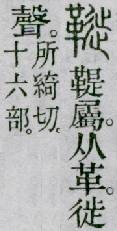 𩌦鞮屬。从革。徙
聲。所綺切。
十六部。